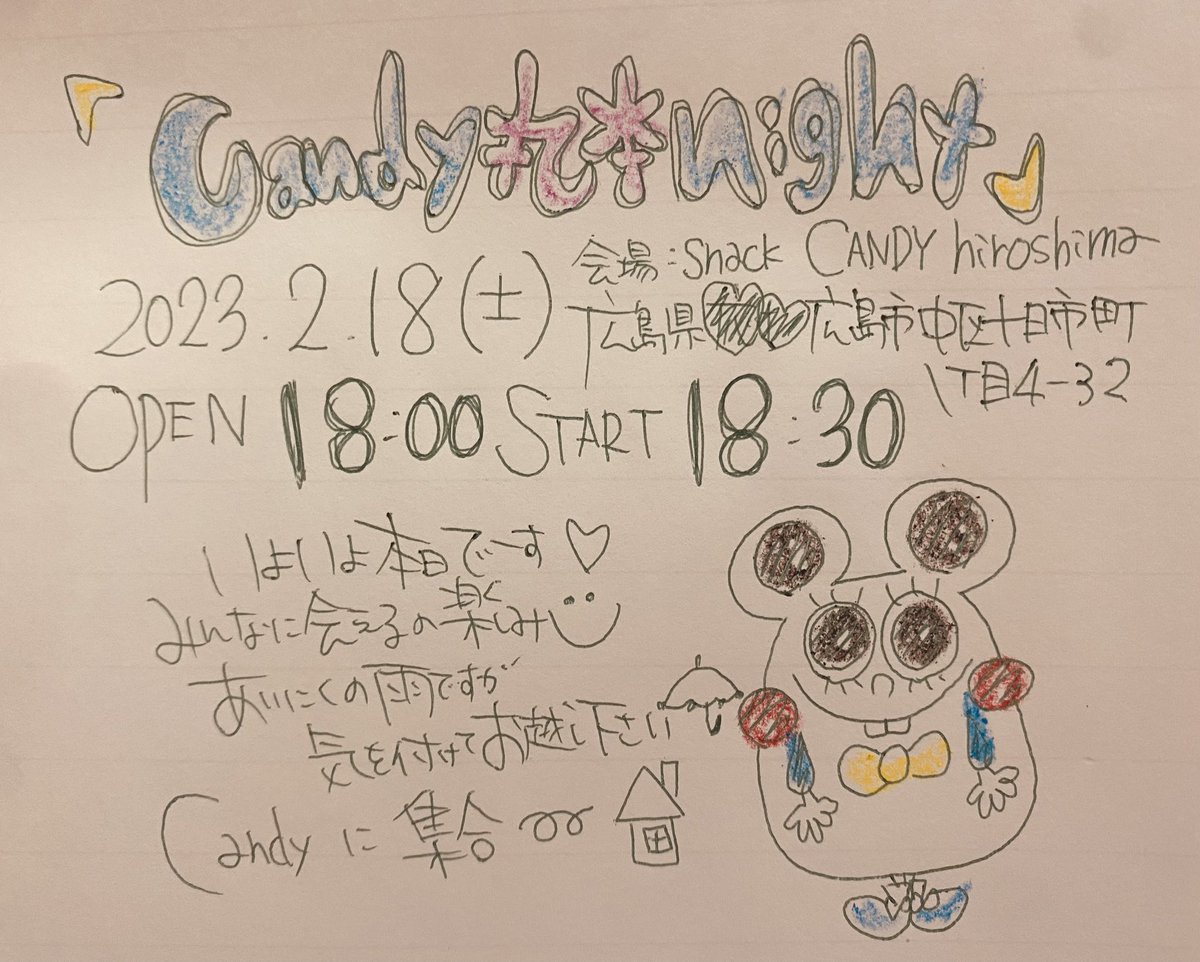 「Candy*night」
2023.2.18(土)
会場:Snack CANDY hiroshima
広島県 広島市中区十日市町
1丁目4-32
OPEN 18:00 START 18:30
いよいよ本日でーす♡
みんなに会えるの楽しみ
あいにくの雨ですが
気を付けてお越し下さい
Candyに集合